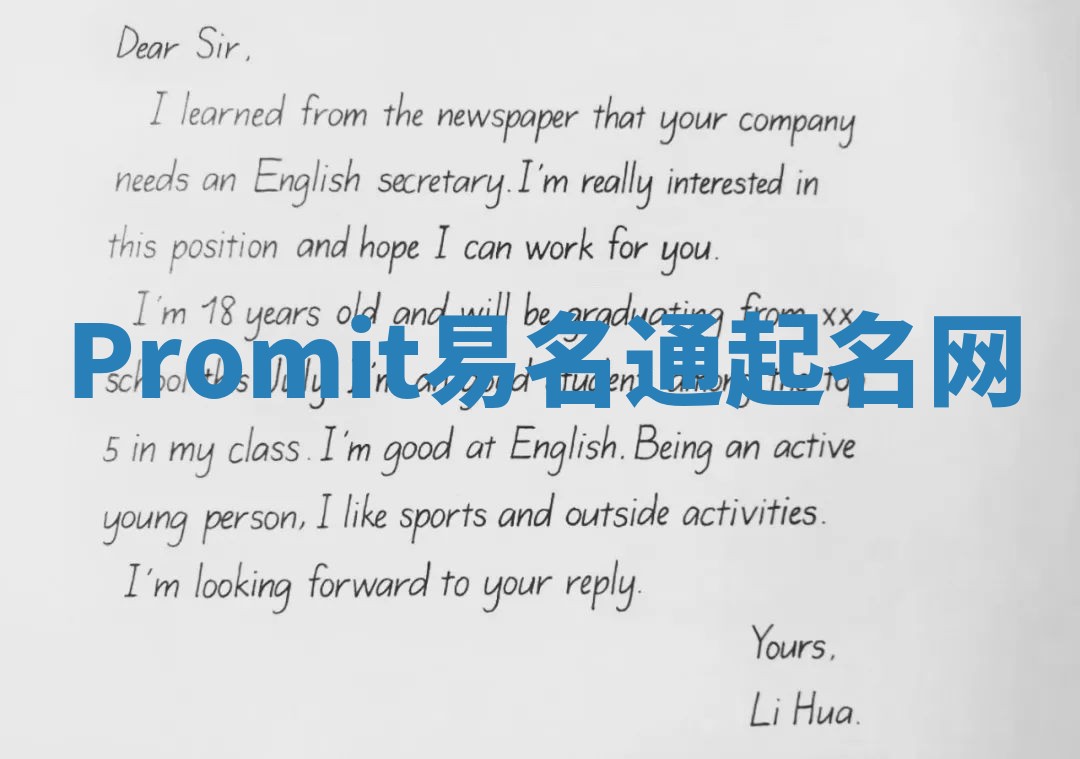 Dear Sir,
I learned from the newspaper that your company
needs an English secretary. I'm really interested in
this position and hope I can work for you.
I'm 18 years old and will be graduating from xx
Promit易名通起名网
school this July. I'm a good student among the top
5 in my class. I'm good at English. Being an active
young person, I like sports and outside activities.
I'm looking forward to your reply.
Yours,
Li Hua.